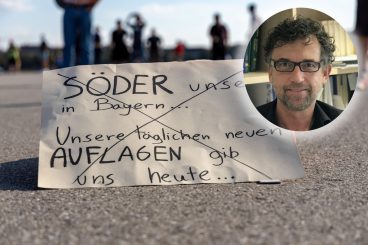 SÖDER unse
in Bayern...
Unsere täglichen neuen
AUFLAGEN gib
uns heute...